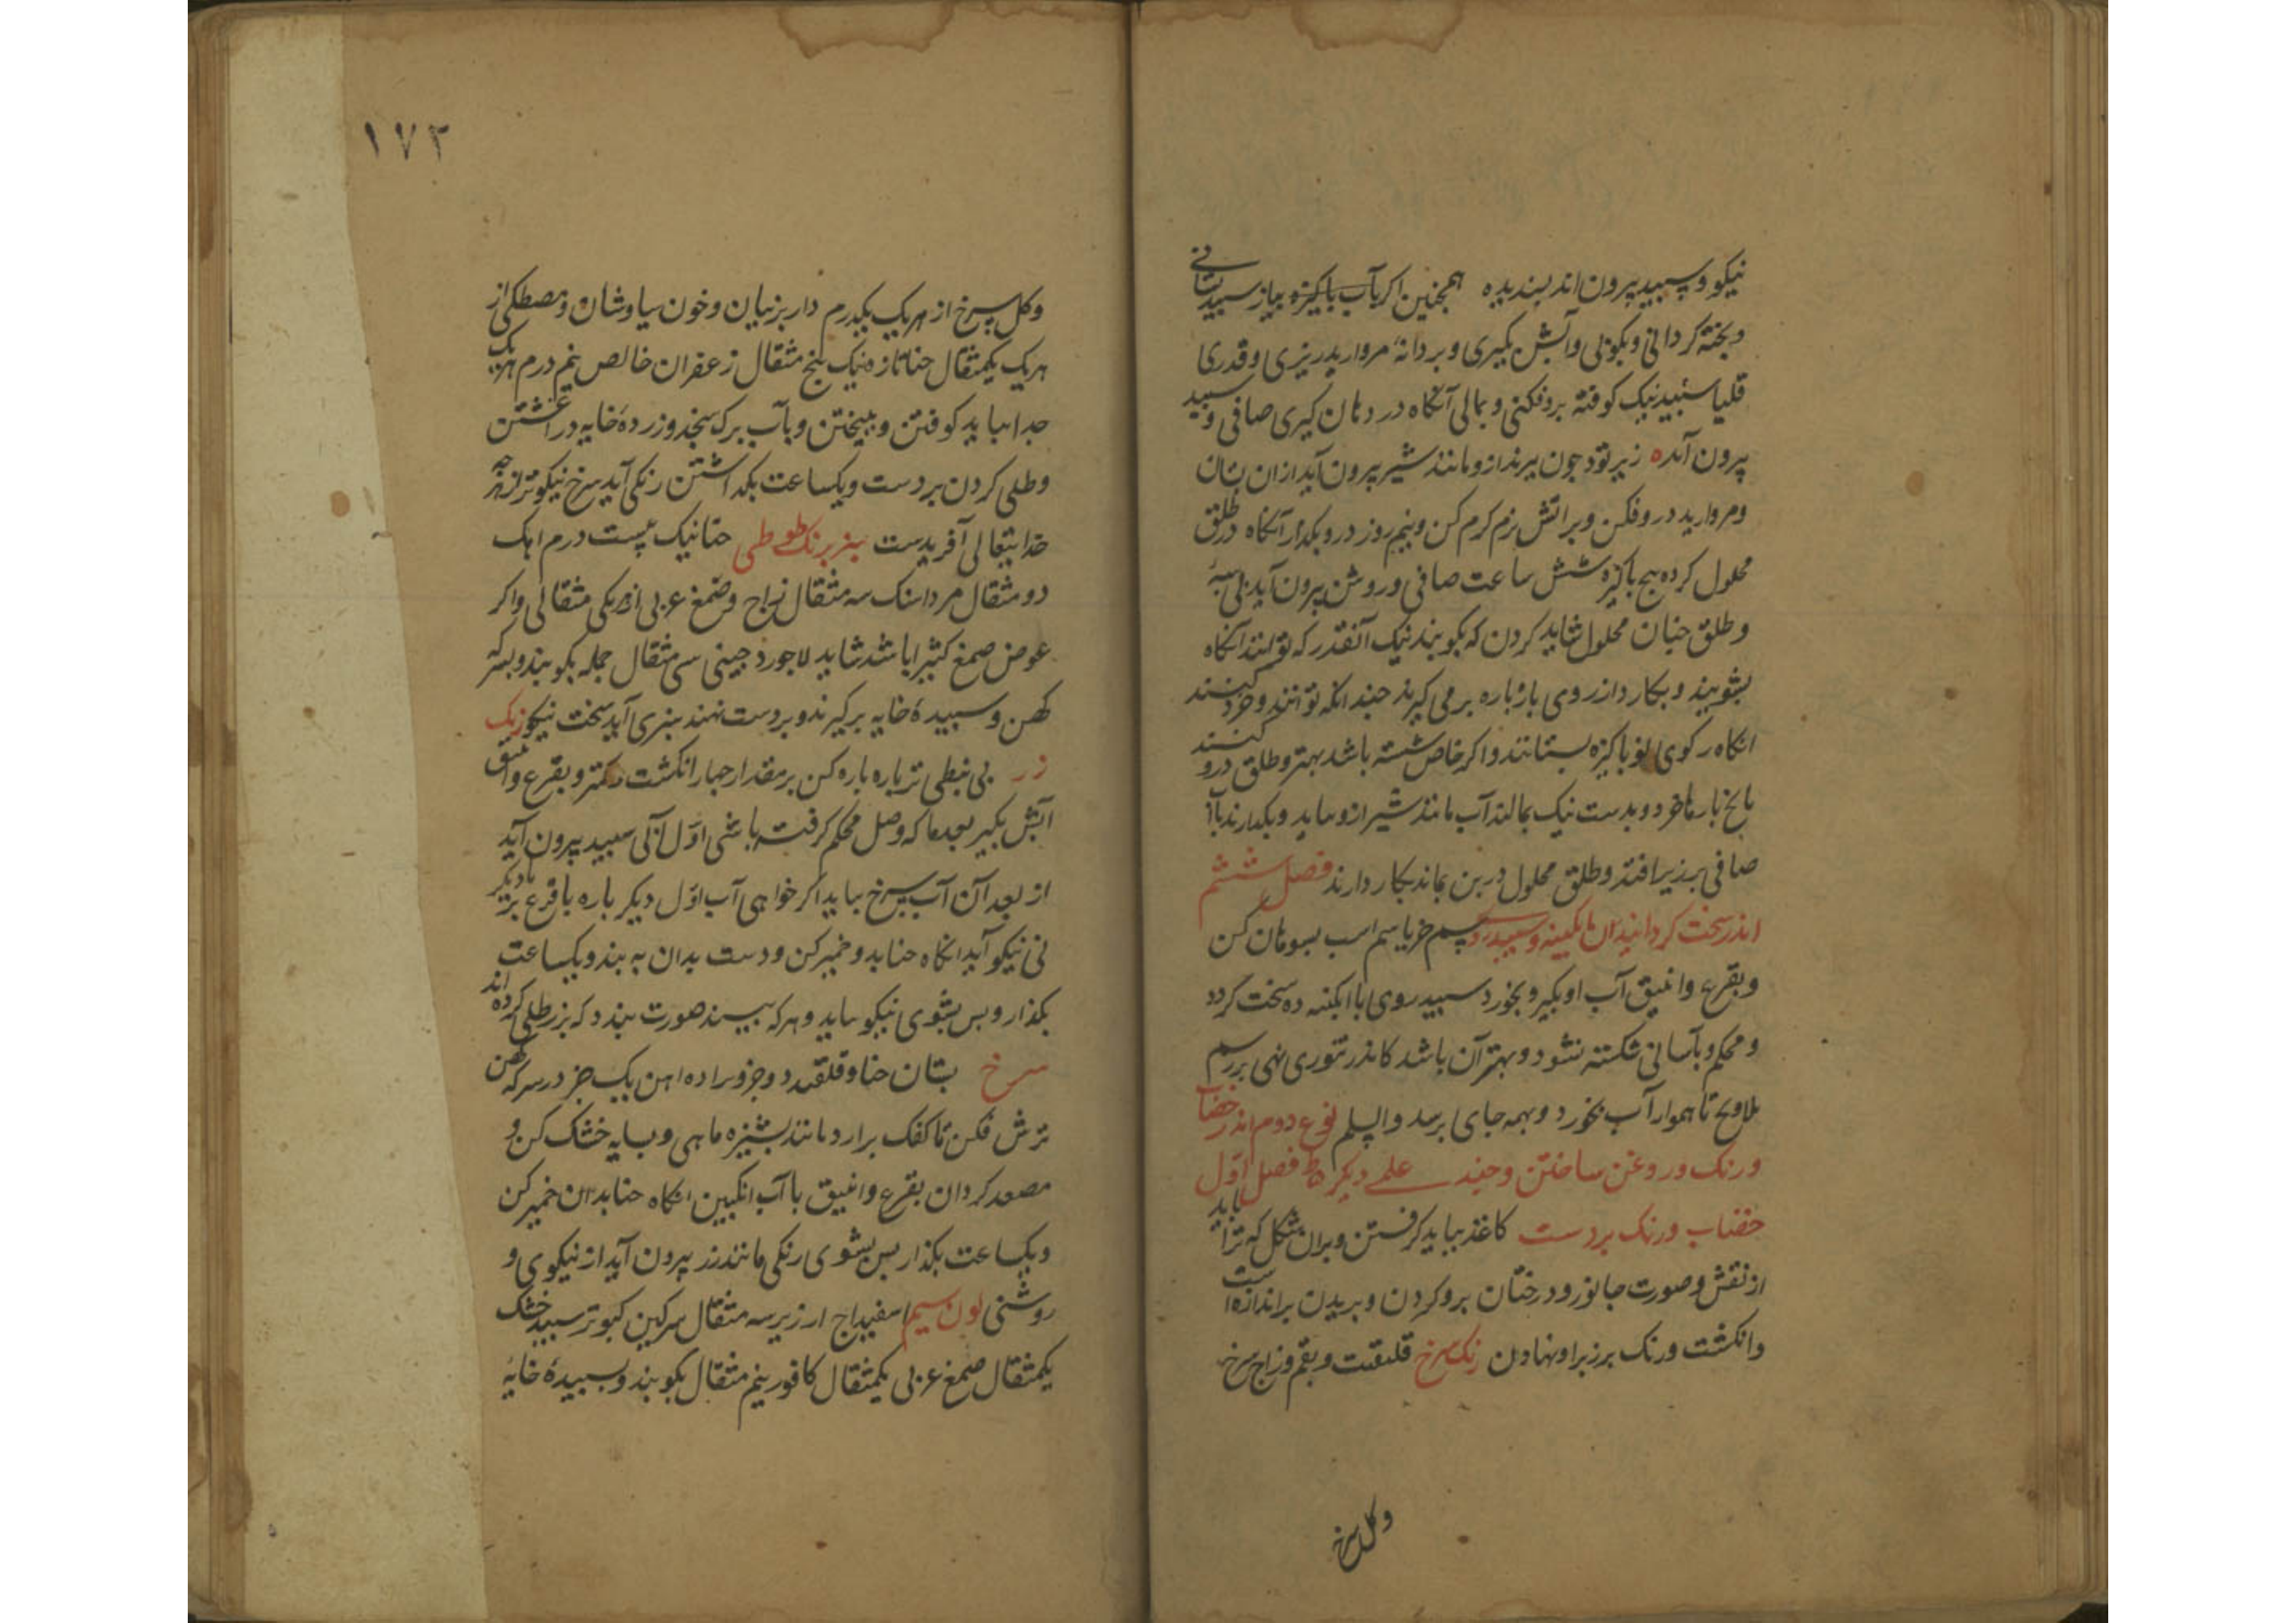 نیکو و سپید بیرون اند بسندیده همچنین اگر بآب باکیزه بیاز سپید بستانی
و بخته کردانی و بکوبی و آبش بکیری و بر دانهٔ مروارید ریزی و قدری
قلیا سپید نیک کوفته بروفکنی و بمالی آنگاه در دهان کیری صافی و سپید
بیرون آید زیر تود جون بیرنداز و مانند شیر بیرون آید ازان بستان
و مروارید در وفکن و بر اتش نرم کرم کن و نیم روز درو بکذار آنکاه در طلق
محلول کرده باکیزه شش ساعت صافی و روشن بیرون آید
و طلق جنان محلول شاید کردن که بکوبند نیک آنقدر که توانند آنکاه
بشویند و بکارد از روی باره باره بر می کیرند جندانکه توانند و خرد کنند
انکاه رکوی نو باکیزه بستانند و اکر خاص شسته باشد بهتر و طلق درو کنند
با یخ بارها خرد و بدست نیک بمالند آب مانند شیر ازو بیاید و بکذارند تا آب
صافی بر زیر افتد و طلق محلول در بن بماند بکار دارند فصل ششم
اندر سخت کردانیدن ابکینه و سپیدرو سم خر یا سم اسب بسوهان کن
و بقرع و انبیق آب او بکیر و بخورد سپید روی یا ابکینه ده سخت کردد
و محکم و بآسانی شکسته نشود و بهتر آن باشد کاندر تنوری نهی بر رسم
ملاویح تا هموار آب بخورد و بهمه جای برسد والسلم نوع دوم اندر خضاب
و رنک و روغن ساختن و جند علمے دیکر فصل اوّل
خضاب و رنک بر دست کاغذ بباید کرفتن و بران شکل که ترا باید
از نقش و صورت جانور و درختان برو کردن و بریدن بر اندازه دست
و انکشت و رنک بر زبر او نهادن رنک سرخ قلقت و بقم و زاج سرخ
وکل سرخ
۱۷۲
وکل سرخ از هریک یکدرم دار برنیان و خون سیاوشان و مصطکی از
هریک یکمثقال حنا تازه نیک بنج مثقال زعفران خالص نیم درم هریک
جدا بباید کوفتن و بیختن و بآب برک سنجد و زردهٔ خایه در اغشتن
و طلی کردن بر دست و یکساعت بکداشتن رنکی آید سرخ نیکوتر از هرچه
خدایتعالی آفریدست سبز برنک طوطی حنا نیک بیست درم اهک
دو مثقال مرداسنک سه مثقال زاج و صمغ عربی از هر یکی مثقالی و اکر
عوض صمغ کثیرا باشد شاید لاجورد جینی سی مثقال جمله بکوبند و بسرکه
کهن و سبیدهٔ خایه برکیرند و بر دست نهند سبزی آید سخت نیکو رنک
زر بی نبطی تر باره باره کن بر مقدار جهار انکشت و کمتر و بقرع و انبیق
آبش بکیر بعدما که وصل محکم کرفته باشی اوّل آبی سبید بیرون آید
از بعد آن آب سرخ بیاید اکر خواهی آب اوّل دیکر باره باقرع بر تا دیکر
نی نیکو آید انکاه حنا بدو خمیر کن و دست بدان به بند و یکساعت
بکذار و بس بشوی نیکو بیاید و هرکه ببیند صورت بندد که بزر طلی کرده اند
سرخ بستان حنا و قلقند دو جزو براده اهن یک جز در سرکه کهن
ترش فکن تا کفک برارد مانند بشیزه ماهی و بسایه خشک کن و
مصعد کردان بقرع و انبیق با آب انکبین انکاه حنا بدان خمیر کن
و یکساعت بکذار بس بشوی رنکی مانند زر بیرون آید از نیکوی و
روشنی لون سیم اسفیداج ارزیر سه مثقال سرکین کبوتر سبید خشک
یکمثقال صمغ عربی یکمثقال کافور نیم مثقال بکوبند و بسبیدهٔ خایهٔ